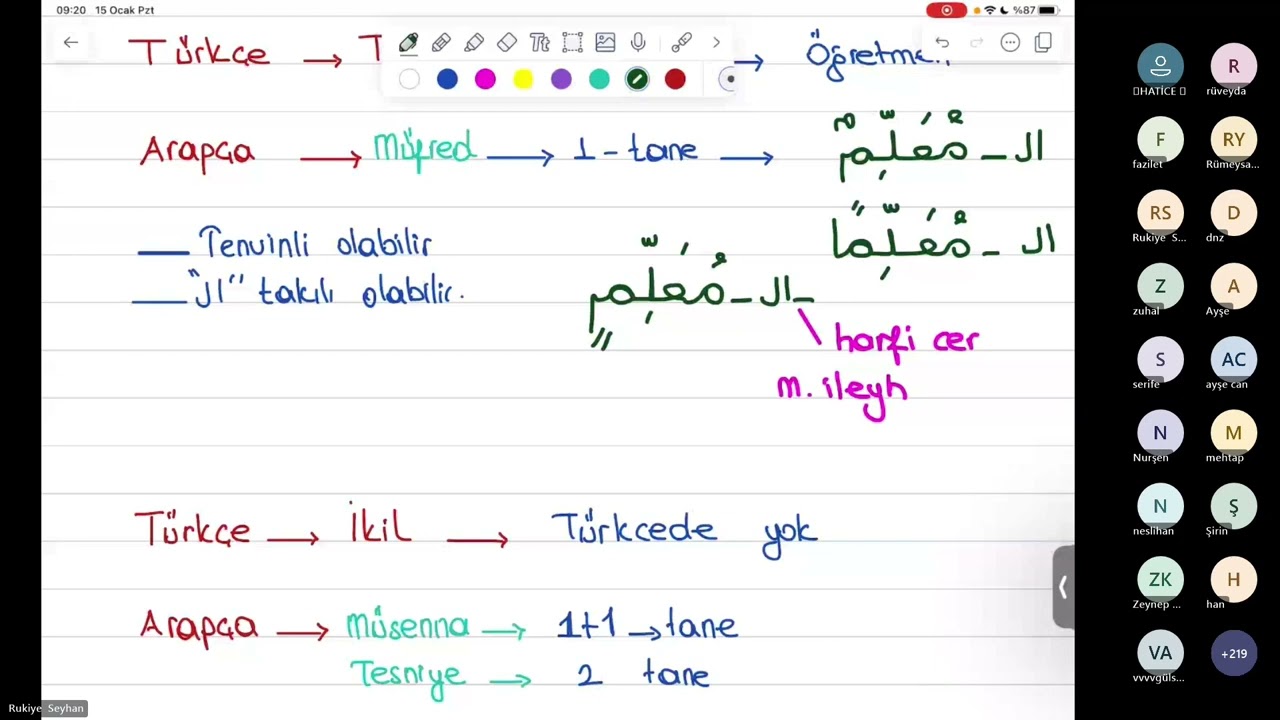 09:20 15 Ocak Pzt
%87
Türkçe → T → Öğretmen
Arapça → Müfred → 1 - tane → الـ ـ مُعَلِّمٌ
__ Tenvinli olabilir الـ ـ مُعَلِّمًا
__ "ال" takılı olabilir. الـ ـ مُعَلِّمٍ
harfi cer
m. ileyh
Türkçe → İkil → Türkcede yok
Arapça → Müsenna → 1+1 → tane
Tesniye → 2 tane
Rukiye Seyhan
HATİCE
R
rüveyda
F
fazilet
RY
Rümeysa...
RS
Rukiye S...
D
dnz
Z
zuhal
A
Ayşe
S
serife
AC
ayşe can
N
Nurşen
M
mehtap
N
neslihan
Ş
Şirin
ZK
Zeynep ...
H
han
VA
vvvvgüls...
+219